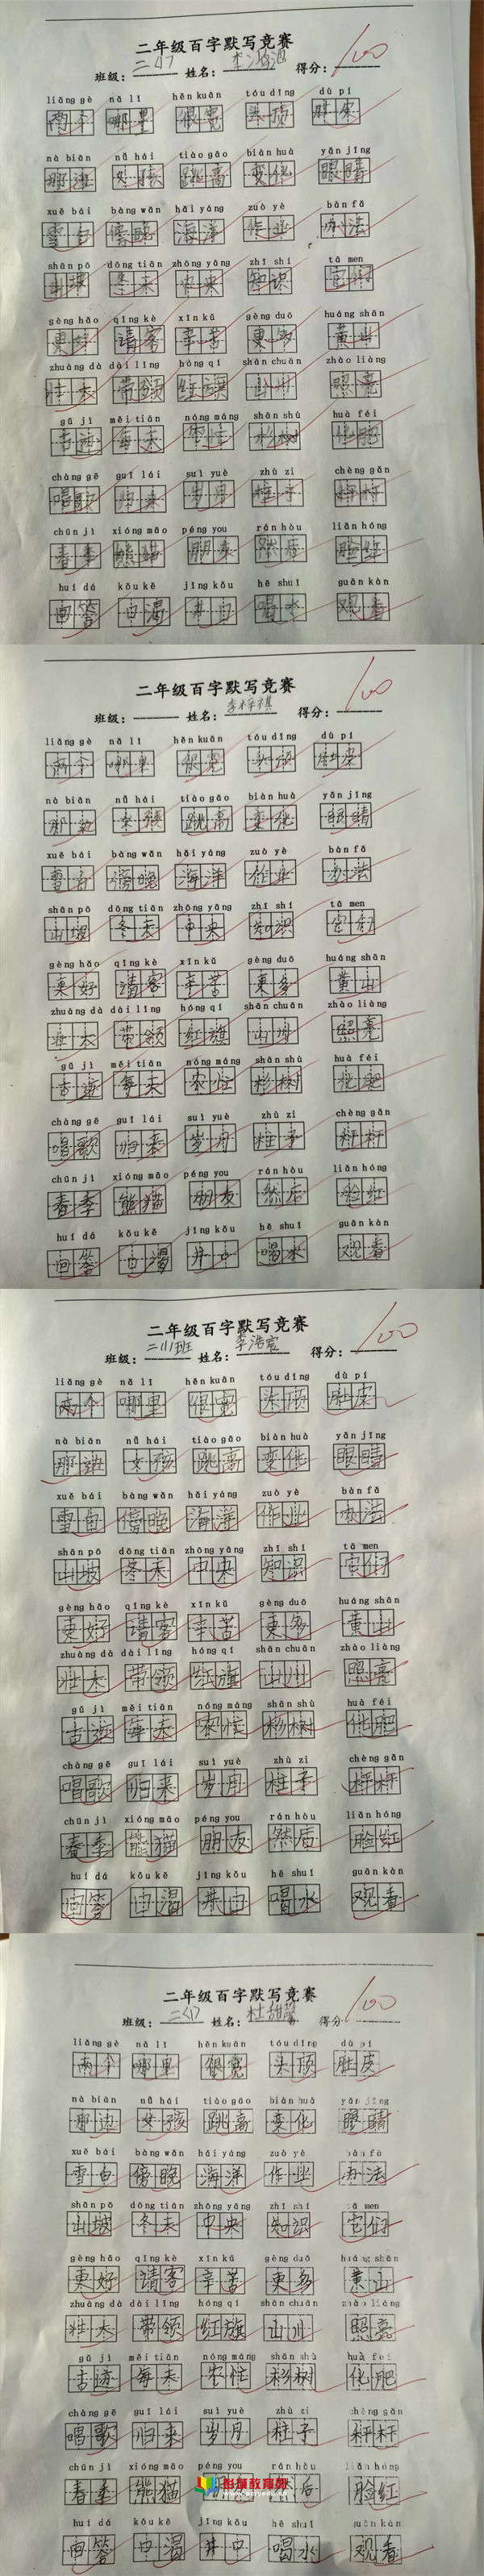 二年级百字默写竞赛
班级： 姓名： 得分： 100
liǎng gè nǎ lǐ hěn kuān tóu dǐng dù pí
两个 哪里 很宽 头顶 肚皮
nà biān nǚ hái tiào gāo biàn huà yǎn jīng
那边 女孩 跳高 变化 眼睛
xuě bái bàng wǎn hǎi yáng zuò yè bàn fǎ
雪白 傍晚 海洋 作业 办法
shān pō dōng tiān zhōng yāng zhī shi tā men
山坡 冬天 中央 知识 它们
gèng hǎo qǐng kè xīn kǔ gèng duō huáng shān
更好 请客 辛苦 更多 黄山
zhuàng dà dài lǐng hóng qí shān chuān zhào liàng
壮大 带领 红旗 山川 照亮
gǔ jì měi tiān nóng máng shān shù huà féi
古迹 每天 农忙 杉树 化肥
chàng gē guī lái suì yuè zhù zi chèng gǎn
唱歌 归来 岁月 柱子 秤杆
chūn jì xióng māo péng you rán hòu liǎn hóng
春季 熊猫 朋友 然后 脸红
huí dá kǒu kě jǐng kǒu hē shuǐ guān kàn
回答 口渴 井口 喝水 观看
二年级百字默写竞赛
班级： 姓名：李梓祺 得分： 100
liǎng gè nǎ lǐ hěn kuān tóu dǐng dù pí
两个 哪里 很宽 头顶 肚皮
nà biān nǚ hái tiào gāo biàn huà yǎn jīng
那边 女孩 跳高 变化 眼睛
xuě bái bàng wǎn hǎi yáng zuò yè bàn fǎ
雪白 傍晚 海洋 作业 办法
shān pō dōng tiān zhōng yāng zhī shi tā men
山坡 冬天 中央 知识 它们
gèng hǎo qǐng kè xīn kǔ gèng duō huáng shān
更好 请客 辛苦 更多 黄山
zhuàng dà dài lǐng hóng qí shān chuān zhào liàng
壮大 带领 红旗 山川 照亮
gǔ jì měi tiān nóng máng shān shù huà féi
古迹 每天 农忙 杉树 化肥
chàng gē guī lái suì yuè zhù zi chèng gǎn
唱歌 归来 岁月 柱子 秤杆
chūn jì xióng māo péng you rán hòu liǎn hóng
春季 熊猫 朋友 然后 脸红
huí dá kǒu kě jǐng kǒu hē shuǐ guān kàn
回答 口渴 井口 喝水 观看
二年级百字默写竞赛
班级：二(1)班 姓名：李浩宸 得分： 100
liǎng gè nǎ lǐ hěn kuān tóu dǐng dù pí
两个 哪里 很宽 头顶 肚皮
nà biān nǚ hái tiào gāo biàn huà yǎn jīng
那边 女孩 跳高 变化 眼睛
xuě bái bàng wǎn hǎi yáng zuò yè bàn fǎ
雪白 傍晚 海洋 作业 办法
shān pō dōng tiān zhōng yāng zhī shi tā men
山坡 冬天 中央 知识 它们
gèng hǎo qǐng kè xīn kǔ gèng duō huáng shān
更好 请客 辛苦 更多 黄山
zhuàng dà dài lǐng hóng qí shān chuān zhào liàng
壮大 带领 红旗 山川 照亮
gǔ jì měi tiān nóng máng shān shù huà féi
古迹 每天 农忙 杉树 化肥
chàng gē guī lái suì yuè zhù zi chèng gǎn
唱歌 归来 岁月 柱子 秤杆
chūn jì xióng māo péng you rán hòu liǎn hóng
春季 熊猫 朋友 然后 脸红
huí dá kǒu kě jǐng kǒu hē shuǐ guān kàn
回答 口渴 井口 喝水 观看
二年级百字默写竞赛
班级： 姓名： 得分： 100
liǎng gè nǎ lǐ hěn kuān tóu dǐng dù pí
两个 哪里 很宽 头顶 肚皮
nà biān nǚ hái tiào gāo biàn huà yǎn jīng
那边 女孩 跳高 变化 眼睛
xuě bái bàng wǎn hǎi yáng zuò yè bàn fǎ
雪白 傍晚 海洋 作业 办法
shān pō dōng tiān zhōng yāng zhī shi tā men
山坡 冬天 中央 知识 它们
gèng hǎo qǐng kè xīn kǔ gèng duō huáng shān
更好 请客 辛苦 更多 黄山
zhuàng dà dài lǐng hóng qí shān chuān zhào liàng
壮大 带领 红旗 山川 照亮
gǔ jì měi tiān nóng máng shān shù huà féi
古迹 每天 农忙 杉树 化肥
chàng gē guī lái suì yuè zhù zi chèng gǎn
唱歌 归来 岁月 柱子 秤杆
chūn jì xióng māo péng you rán hòu liǎn hóng
春季 熊猫 后 脸红
huí dá kǒu kě jǐng kǒu hē shuǐ guān kàn
回答 口渴 井口 喝水 观看